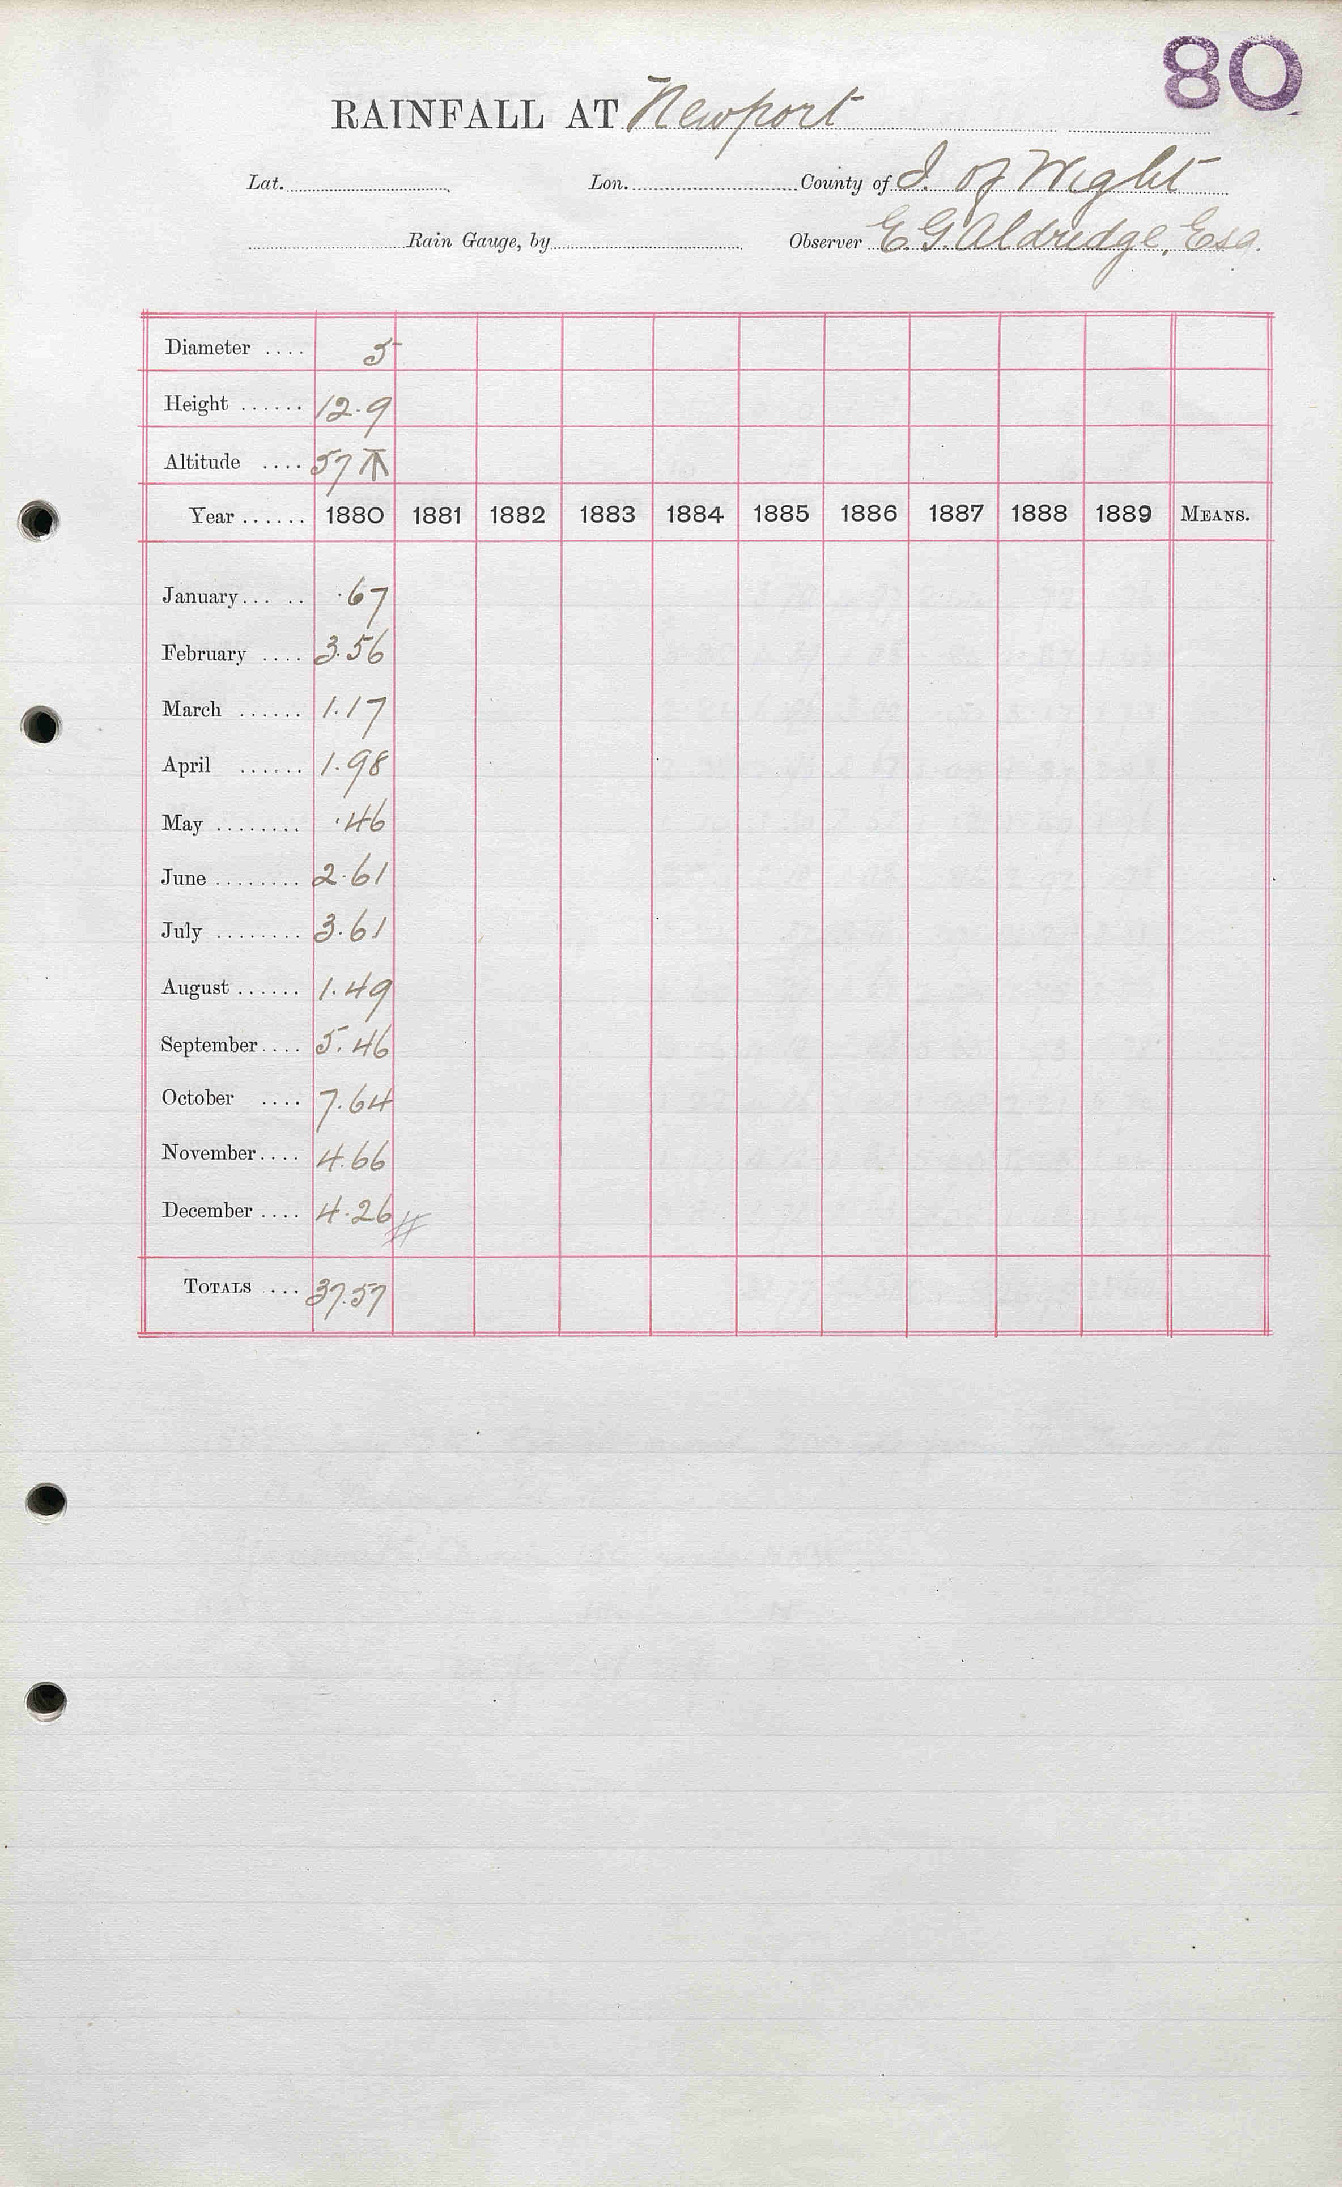 80
RAINFALL AT Newport
Lat. Lon. County of I. of Wight
Rain Gauge, by Observer E. G. Aldredge, Esq.
Diameter .... 5
Height ...... 12.9
Altitude .... 57
Year ...... 1880 1881 1882 1883 1884 1885 1886 1887 1888 1889 MEANS.
January... .. .67
February .... 3.56
March ...... 1.17
April ...... 1.98
May ........ .46
June ........ 2.61
July ........ 3.61
August ...... 1.49
September.... 5.46
October .... 7.64
November.... 4.66
December .... 4.26
TOTALS .... 37.57